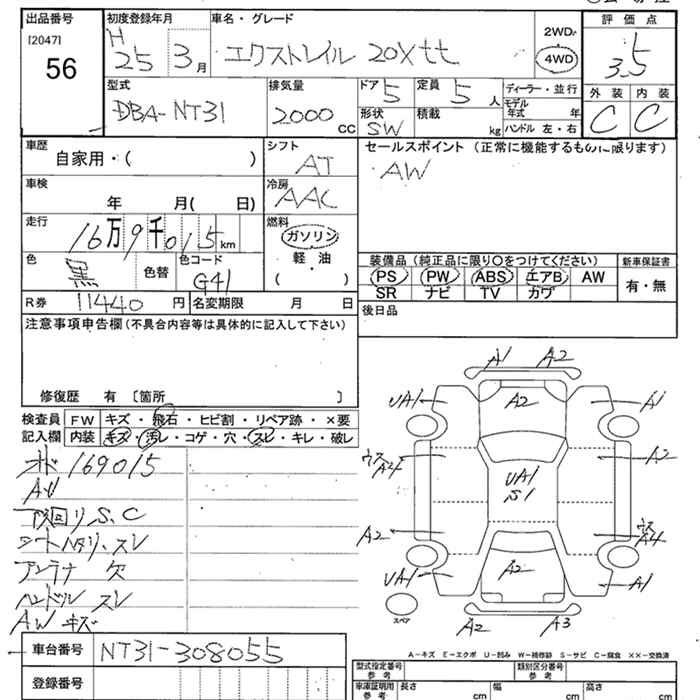 出品番号 初度登録年月 車名・グレード 評価点
[2047] H 2WD
56 25 3月 エクストレイル 20Xtt 4WD 3.5
型式 排気量 ドア 5 定員 5人 ディーラー・並行 外装 内装
DBA-NT31 2000cc 形状 SW 積載 kg モデル年式 年 C C
ハンドル 左・右
車歴 シフト セールスポイント (正常に機能するものに限ります)
自家用・( ) AT AW
車検 冷房
年 月( 日) AAC
走行 燃料
16万9千015km ガソリン
色 黒 色替 色コード G41 軽・油 ( )
装備品 (純正品に限り○をつけてください) 新車保証書
PS PW ABS エアB AW 有・無
SR ナビ TV カワ
R券 11440円 名変期限 月 日 後日品
注意事項申告欄 (不具合内容等は具体的に記入して下さい)
修復歴 有 〔箇所 〕
検査員記入欄 FW キズ・飛石・ヒビ割・リペア跡・×要
内装 キズ・汚レ・コゲ・穴・スレ・キレ・破レ
169015
AW
下回り S、C
シートヘタリ、スレ
アンテナ 欠
ハンドル スレ
AW キズ
A1 A2
UA1 A2 A1
ウスA4 A2
UA1
S1
A2 ウスA4
UA1 A2 A1
スペア
A2 A3
A-キズ E-エクボ U-凹み W-補修跡 S-サビ C-腐食 XX-交換済
車台番号 NT31-308055
登録番号
型式指定番号 参考 類別区分番号 参考
車庫証明用 参考 長さ cm 幅 cm 高さ cm